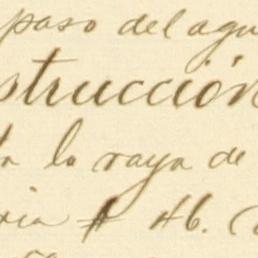 paso del agu
strucción
la raya de
ria A Hb.